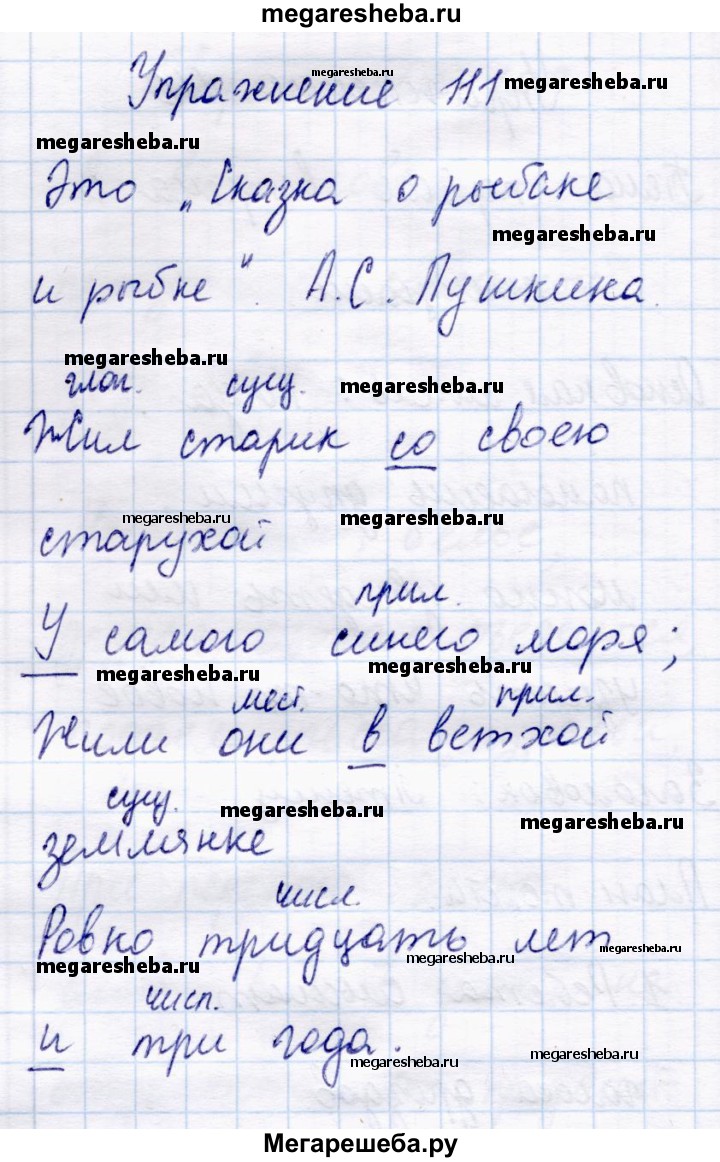 megaresheba.ru
Упражнение 111
megaresheba.ru
megaresheba.ru
megaresheba.ru
Это „Сказка о рыбаке
megaresheba.ru
и рыбке". А.С.Пушкина.
megaresheba.ru
глаг. сущ. megaresheba.ru
Жил старик со своею
megaresheba.ru megaresheba.ru
старухой
прил.
У самого синего моря;
megaresheba.ru megaresheba.ru
мест. прил.
Жили они в ветхой
сущ. megaresheba.ru megaresheba.ru
землянке
числ.
Ровно тридцать лет
megaresheba.ru megaresheba.ru megaresheba.ru
числ.
и три года.
megaresheba.ru megaresheba.ru
Мегарешеба.ру